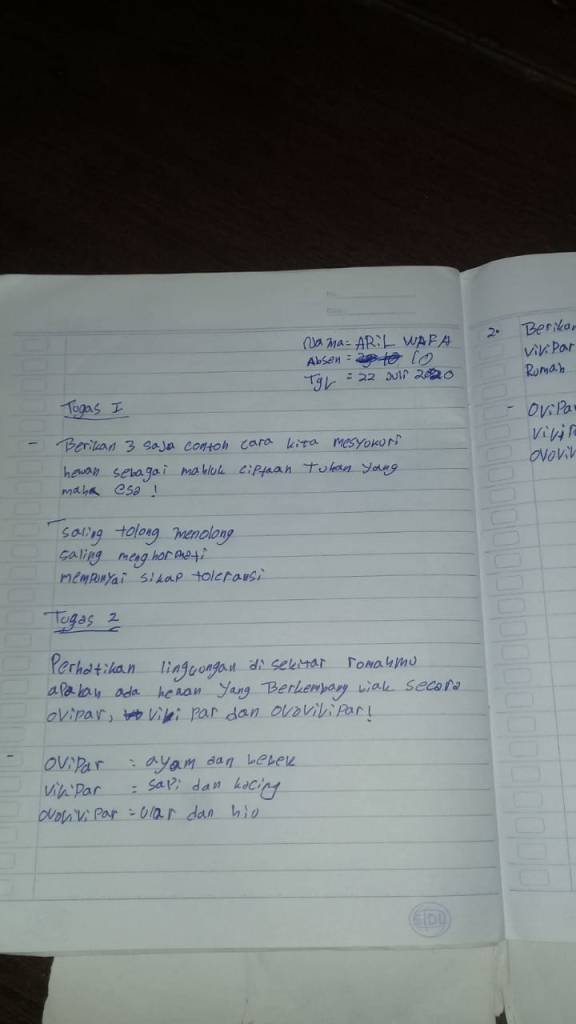 Nama = ARiL WAFA
Absen = 10
Tgl = 22 Juli 2020
Tugas I
- Berikan 3 saja contoh cara kita mesyukuri
hewan sebagai mahluk ciptaan Tuhan yang
maha esa !
saling tolong menolong
saling menghormati
mempunyai sikap toleransi
Tugas 2
Perhatikan lingcungan di sekitar romahmu
apakah ada hewan yang Berkembang biak secara
oviPar, ViviPar dan OVoViviPar!
- OViPar : ayam dan bebek
ViViPar : sapi dan kucing
OVoViVipar = Ular dan hiu
2. Berikan
ViViPar
Rumah
- OViPar
ViViPar
OVOViVi
SIDU